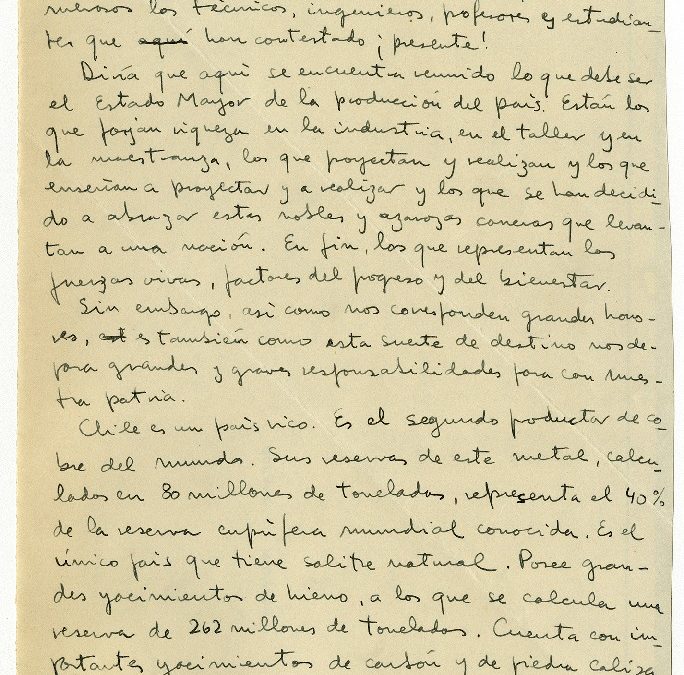 merosos los técnicos, ingenieros, profesores y estudian-
tes que aquí han contestado ¡presente!
Diría que aquí se encuentra reunido lo que debe ser
el Estado Mayor de la producción del país. Están los
que forjan riqueza en la industria, en el taller y en
la maestranza, los que proyectan y realizan y los que
enseñan a proyectar y a realizar y los que se han decidi-
do a abrazar estas nobles y azarozas carreras que levan-
tan a una nación. En fin, los que representan las
fuerzas vivas, factores del progreso y del bienestar.
Sin embargo, así como nos corresponden grandes hono-
res, es también como esta suerte de destino nos de-
para grandes y graves responsabilidades para con nues-
tra patria.
Chile es un país rico. Es el segundo productor de co-
bre del mundo. Sus reservas de este metal, calcu-
ladas en 80 millones de toneladas, representa el 40%
de la reserva cuprífera mundial conocida. Es el
único país que tiene salitre natural. Posee gran-
des yacimientos de hierro, a los que se calcula una
reserva de 262 millones de toneladas. Cuenta con im-
portantes yacimientos de carbón y de piedra caliza